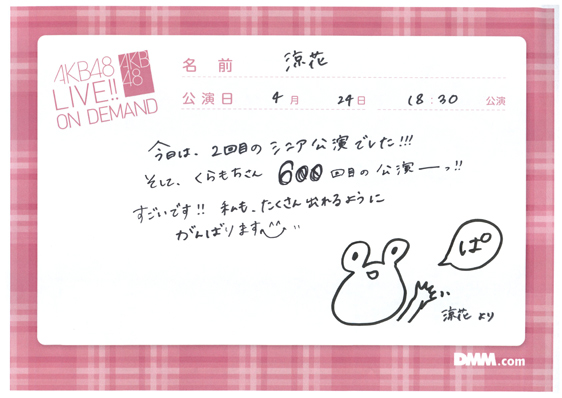 AKB48
LIVE!!
ON DEMAND
AKB
48
名前 涼花
公演日 4月 24日 18:30 公演
今日は、2回目のシニア公演でした!!!
そして、くらもちさん 600回目の公演ーっ!!
すごいです!! 私も、たくさん出れるように
がんばります
ぱ°
涼花より
DMM.com